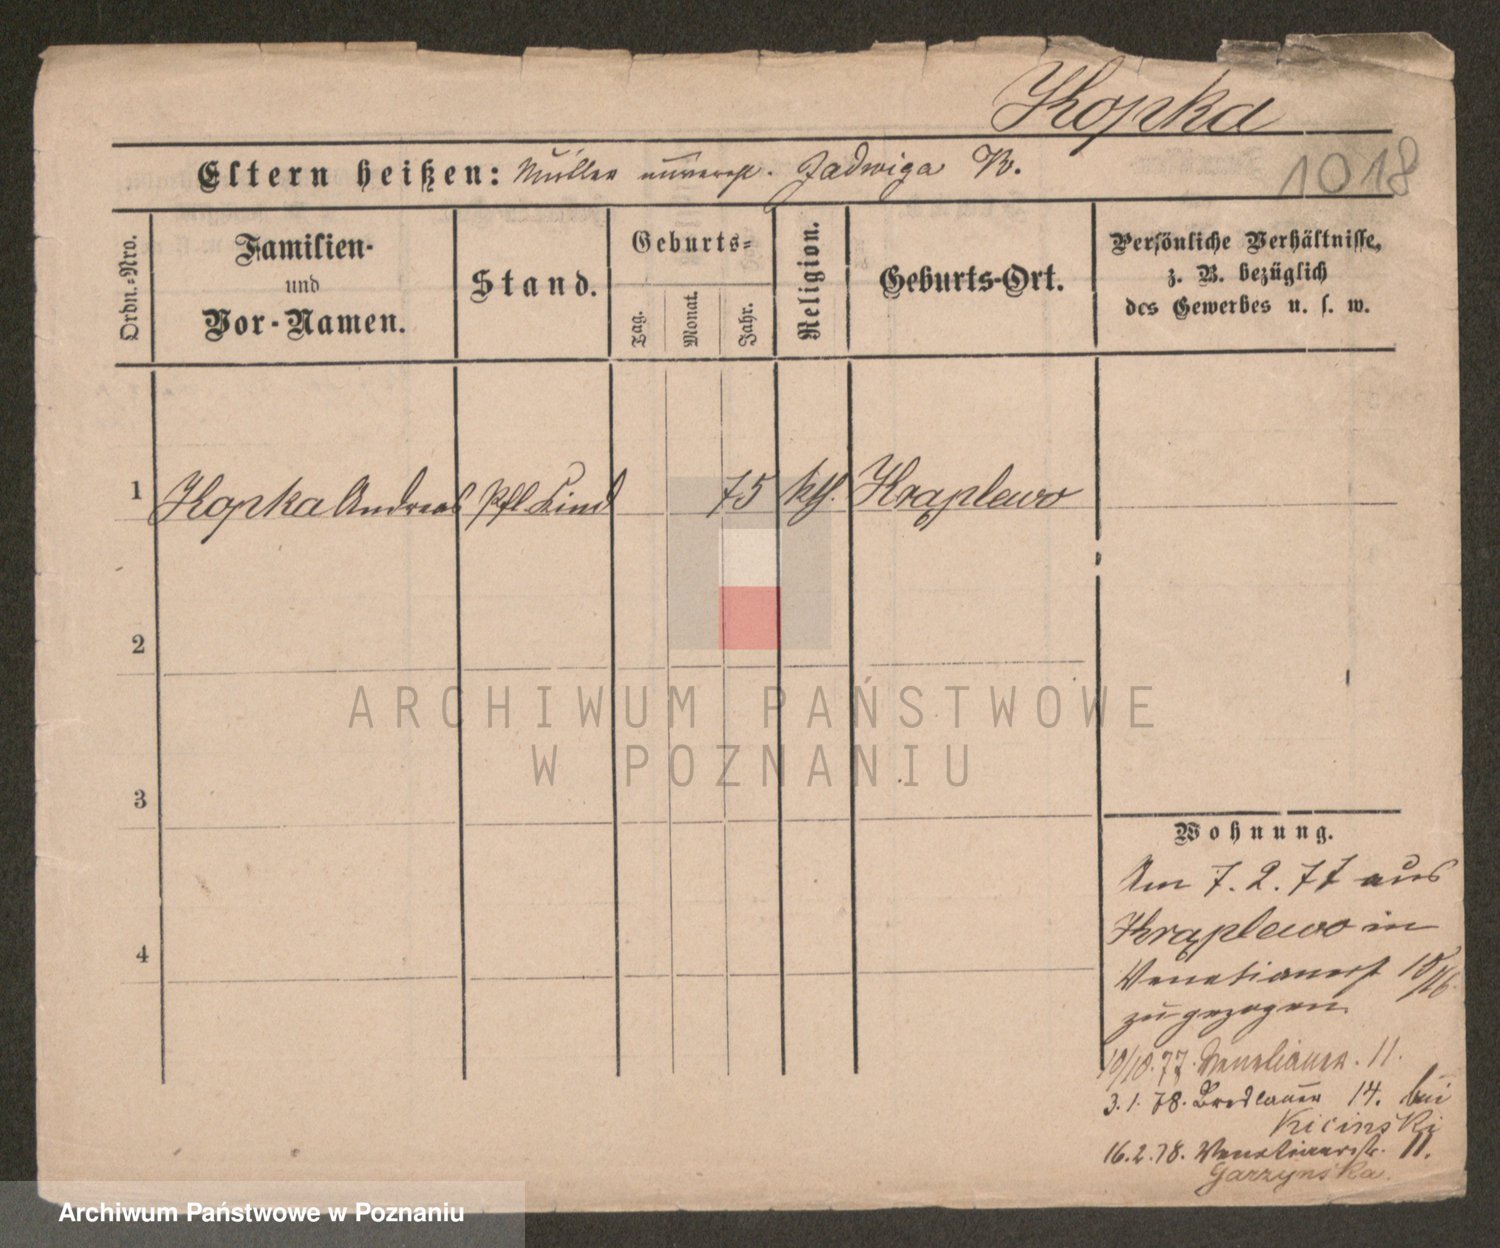 Kopka
1018
Eltern heißen: Mutter unvereh. Jadwiga K.
Ordn.-Nro.
Familien-
und
Vor-Namen.
Stand.
Geburts-
Tag.
Monat.
Jahr.
Religion.
Geburts-Ort.
Persönliche Verhältnisse,
z. B. bezüglich
des Gewerbes u. s. w.
1 Kopka Andreas Pfl Kind 75 kth. Krąplewo
2
3
4
Wohnung.
Am 7.2.77 aus
Krąplewo in
Venetianerst 10/16
zugezogen
10/10.77. Venetianer. 11.
3.1.78. Breslauer 14. bei
Kicinski
16.2.78. Venetianerstr. 11.
Garzynska.
ARCHIWUM PAŃSTWOWE
W POZNANIU
Archiwum Państwowe w Poznaniu